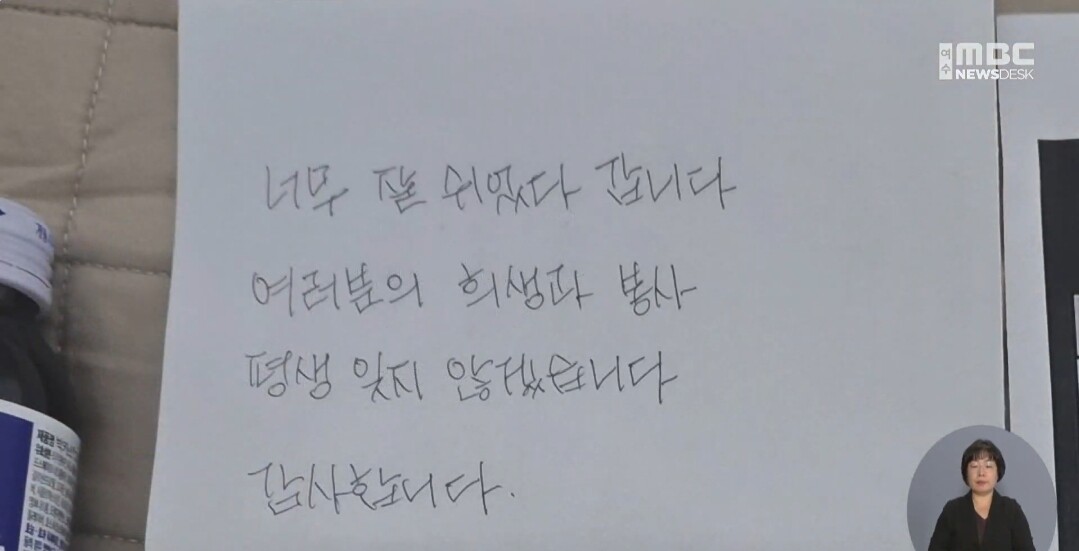 너무 잘 쉬었다 갑니다
여러분의 희생과 봉사
평생 잊지 않겠습니다
감사합니다.
여수 MBC
NEWSDESK